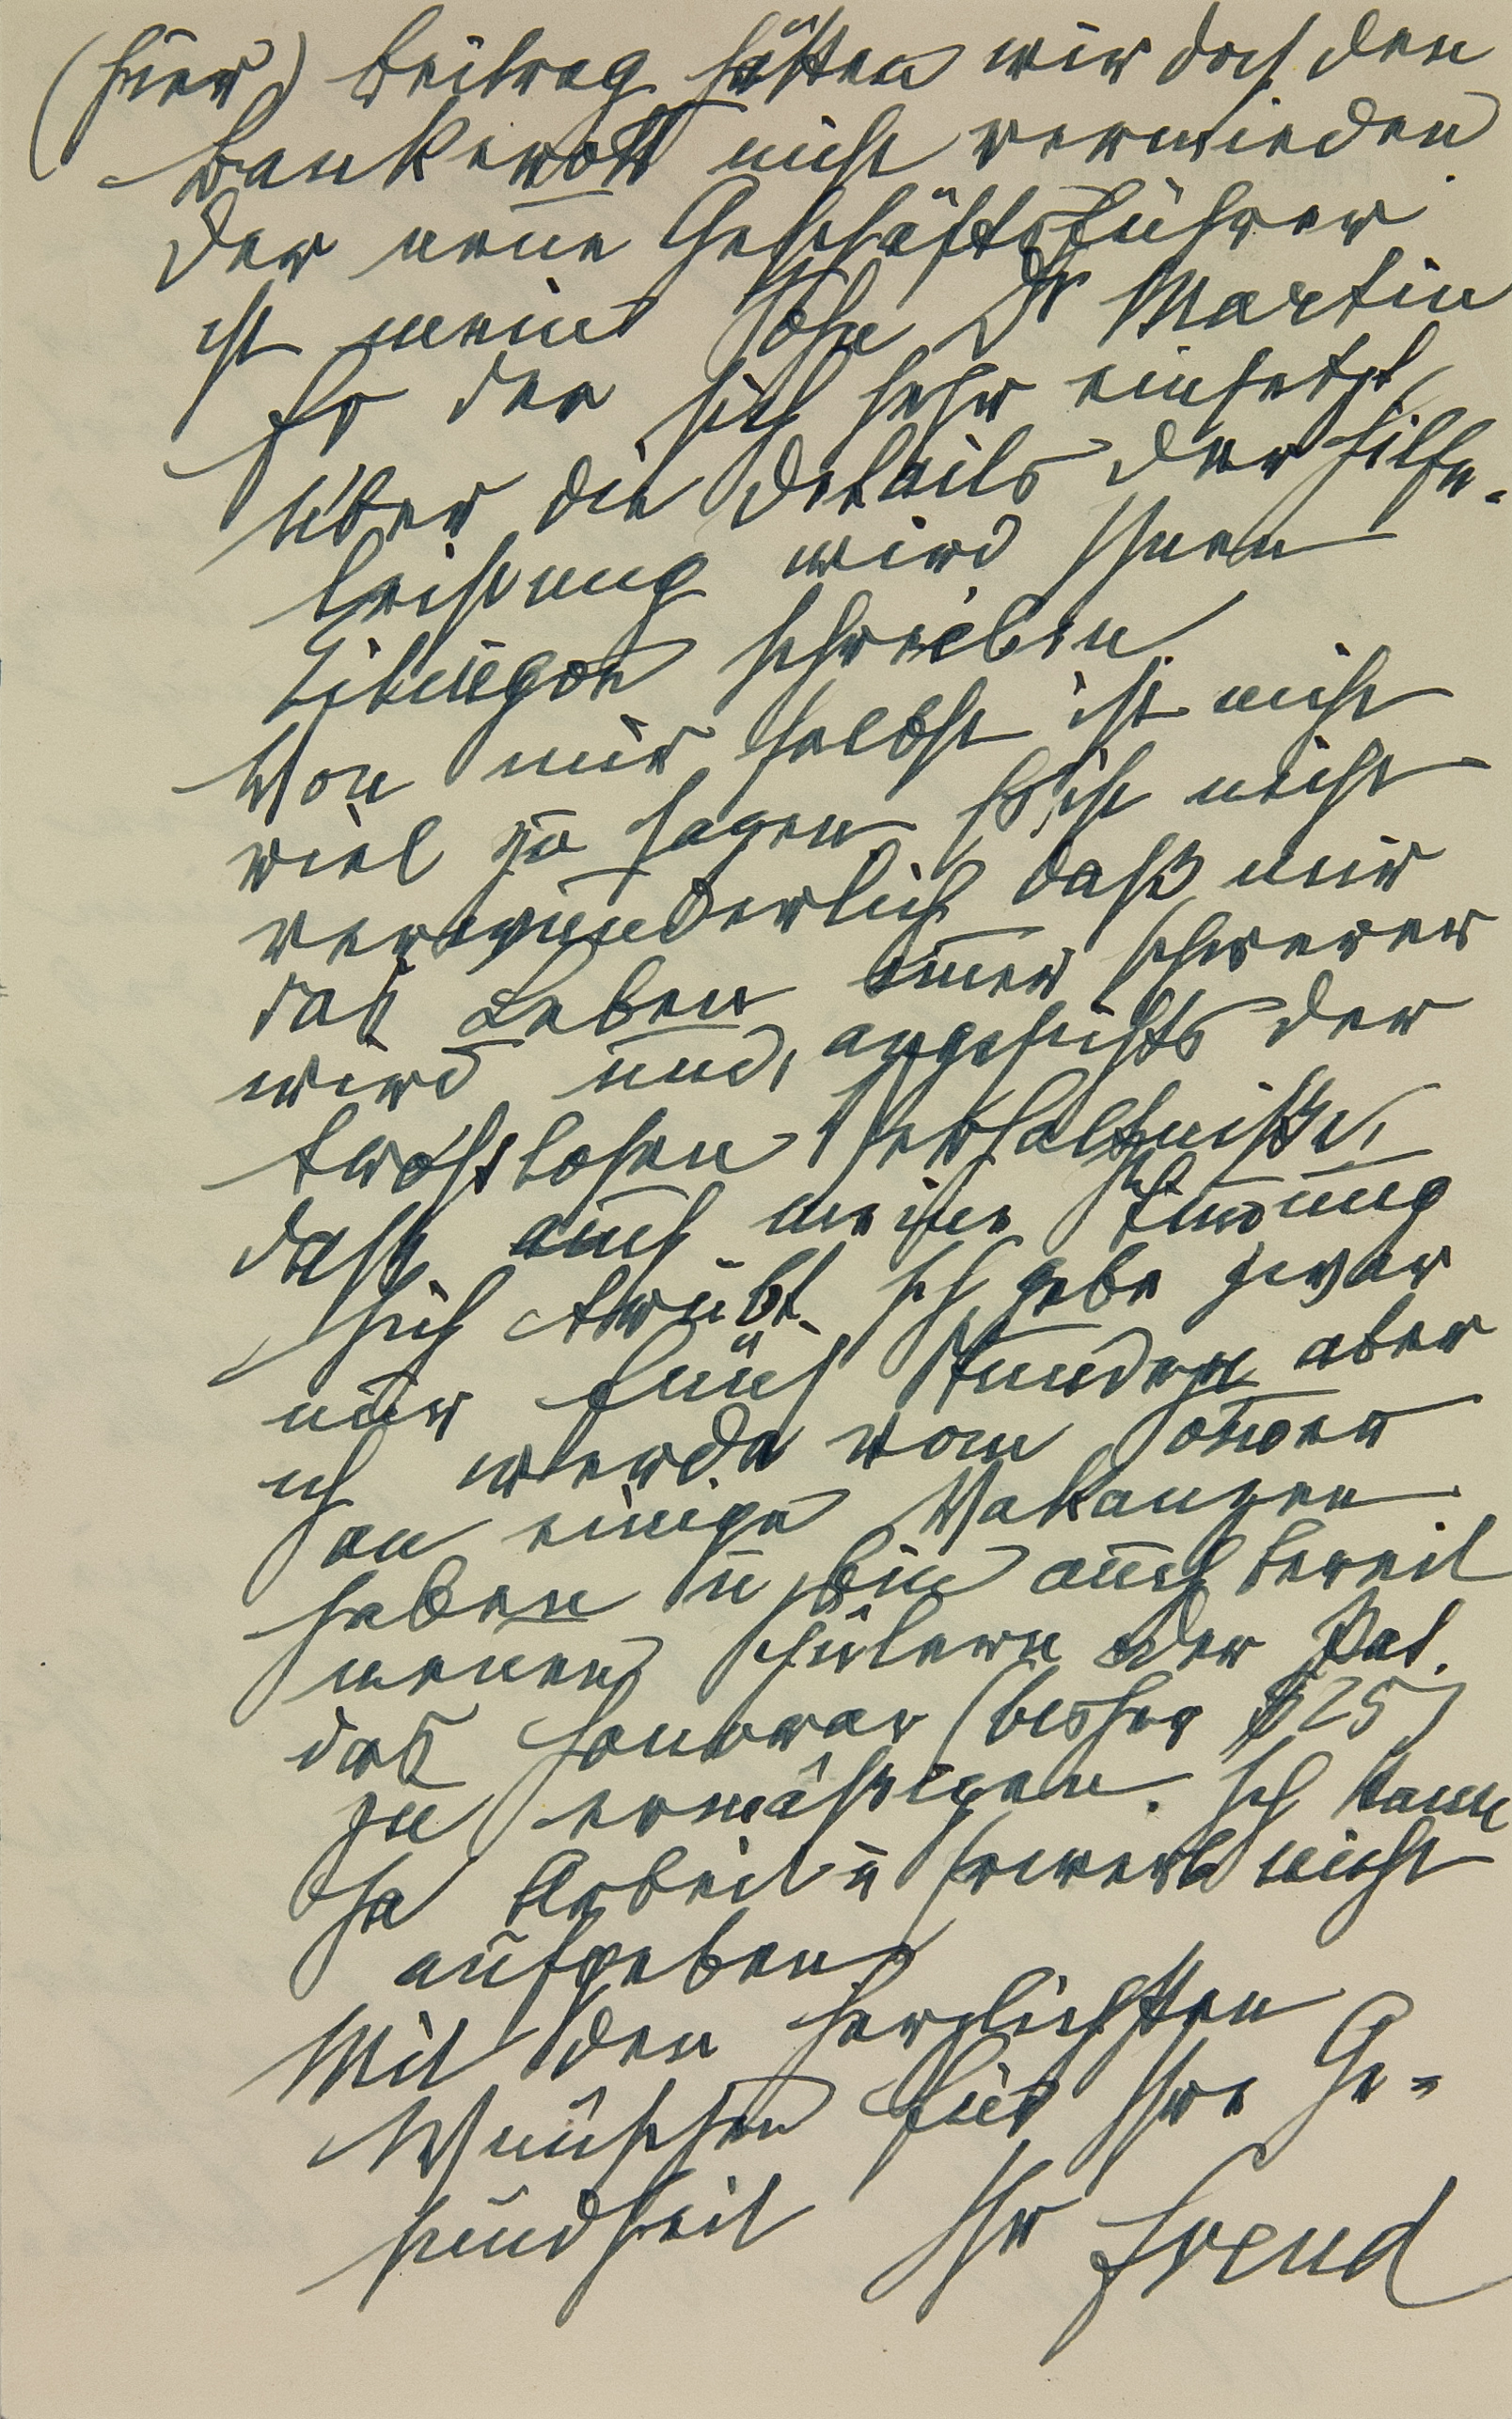 (hier) Beitrag hätten wir doch den
Bankerott nicht vermieden.
Der neue Geschäftsführer
ist mein Sohn Dr Martin
Fr der sich sehr einsetzt,
über die Details der Hilfe-
leistung wird Ihnen
Eitingon schreiben.
Von mir selbst ist nicht
viel zu sagen. Es ist nicht
verwunderlich daß mir
das Leben immer schwerer
wird und, angesichts der
trostlosen Verhältniße,
daß auch meine Stimung
sich trübt. Ich gebe zwar
nur fünf Stunden aber
ich werde vom Somer
an einige Vakanzen
haben u bin auch bereit
neuen Schülern oder Pat.
das Honorar (bisher $25)
zu ermäßigen. Ich kann
ja Arbeit u Erwerb nicht
aufgeben.
Mit den herzlichsten
Wünschen für Ihre Ge-
sundheit Ihr Freud